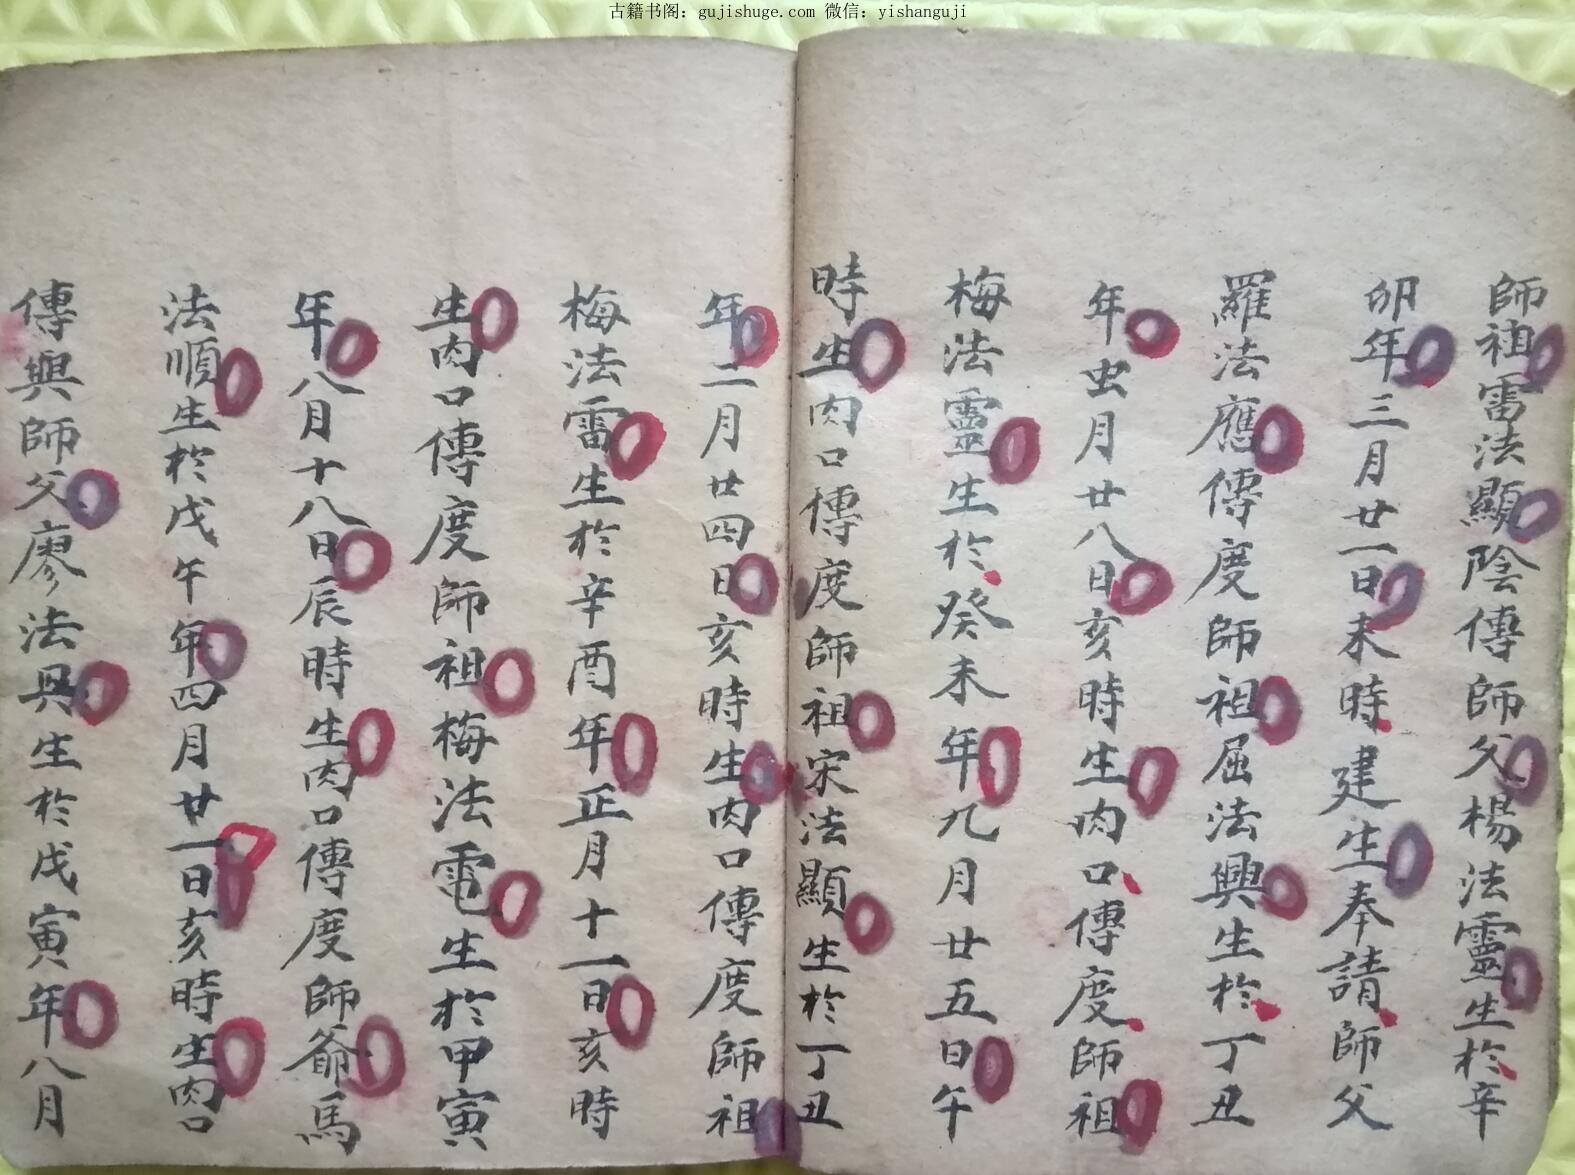 古籍书阁：gujishuge.com 微信：yishanguji
師祖雷法顯陰傳師父楊法靈生於辛
卯年三月廿一日未時建生奉請師父
羅法應傳度師祖屈法興生於丁丑
年虫月廿八日亥時生肉口傳度師祖
梅法靈生於癸未年九月廿五日午
時生肉口傳度師祖宋法顯生於丁丑
年二月廿四日亥時生肉口傳度師祖
梅法雷生於辛酉年正月十一日亥時
生肉口傳度師祖梅法電生於甲寅
年八月十八日辰時生肉口傳度師爺馬
法順生於戊午年四月廿一日亥時生肉口
傳興師父廖法興生於戊寅年八月